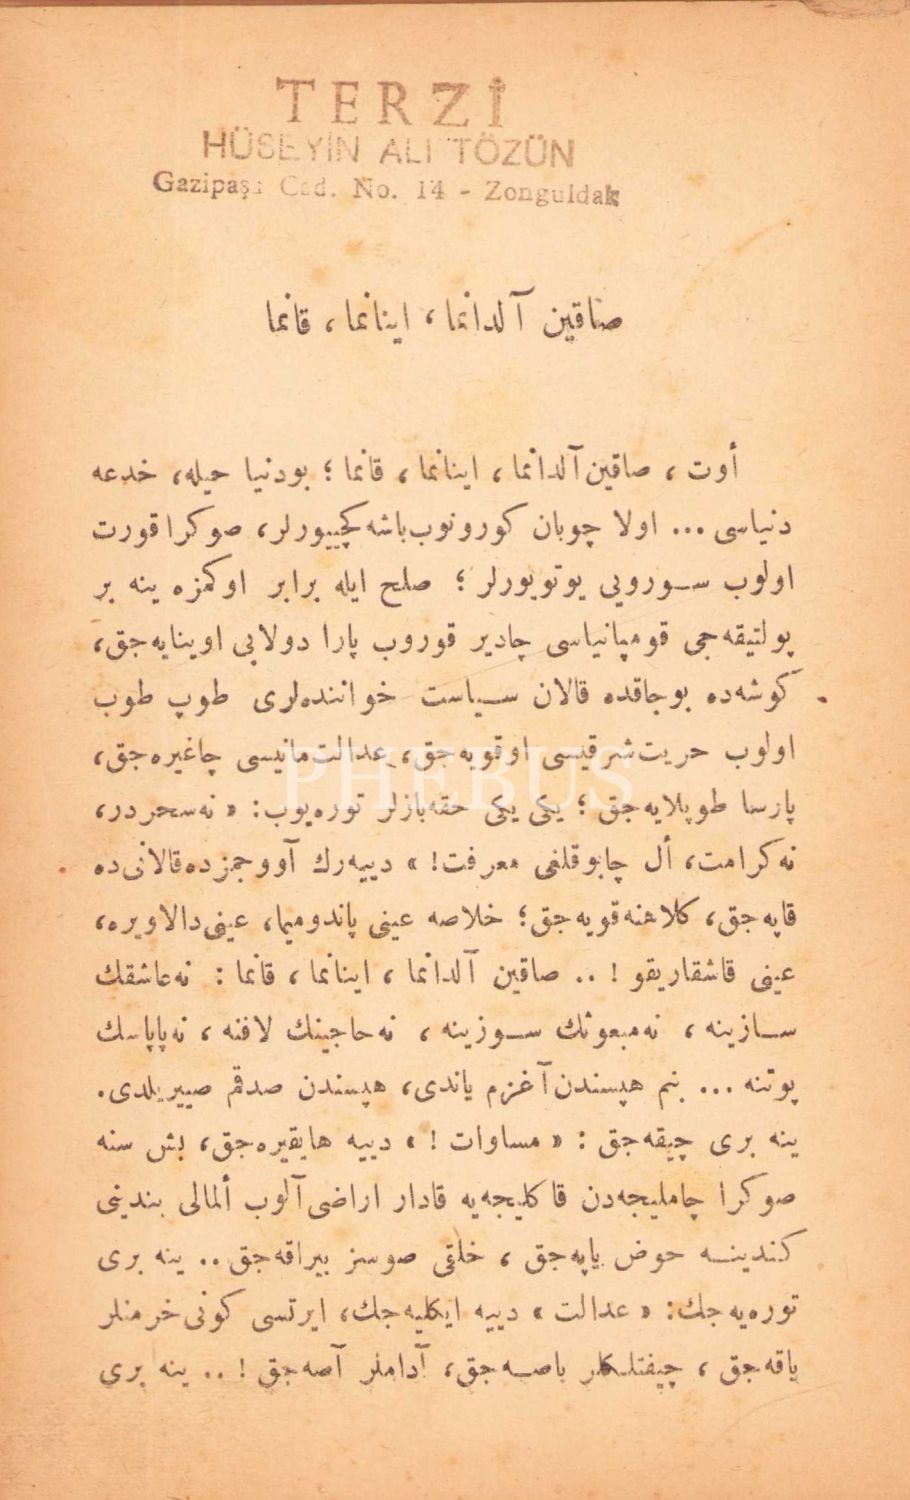 TERZİ
HÜSEYİN ALİ TÖZÜN
Gazipaşa Cad. No. 14 - Zonguldak
صاقین آلدانما ، اینانما ، قانما
أوت ، صاقین آلدانما ، اینانما ، قانما ؛ بودنیا حیله ، خدعه
دنیاسی ... اولا چوبان كورونوب باشه كچییورلر ، صوكرا قورت
اولوب سورویی یوتویورلر ؛ صلح ایله برابر اوكمزه ینه بر
پولتیقه‌جی قومپانیاسی چادیر قوروب پارا دولابی اوینایه‌جق ،
كوشه‌ده بوجاقده قالان سیاست خواننده‌لری طوپ طوپ
اولوب حریت شرقیسی اوقویه‌جق ، عدالت مانیسی چاغیره‌جق ،
PHEBUS
پارسا طوپلایه‌جق ؛ یكی یكی حقه‌بازلر توره‌یوب : « نه سحردر ،
نه كرامت ، أل چابوقلغی معرفت ! » دییه‌رك آووجمزده قالانی ده
قاپه‌جق ، كلاهنه قویه‌جق ؛ خلاصه عینی پاندومیما ، عینی دالاویره ،
عینی قاشقاریقو ! .. صاقین آلدانما ، اینانما ، قانما : نه عاشقك
سازینه ، نه مبعوثك سوزینه ، نه حاجینك لافنه ، نه پاپاسك
پوتنه ... بنم هپسندن آغزم یاندی ، هپسندن صدقم صییریلدی .
ینه بری چیقه‌جق : « مساوات ! » دییه هایقیره‌جق ، بش سنه
صوكرا چاملیجه‌دن قاكلیجه‌یه قادار اراضی آلوب ألمالی بندینی
كندینه حوض یاپه‌جق ، خلقی صوسز بیراقه‌جق .. ینه بری
توره‌یه‌جك : « عدالت » دییه ایكلیه‌جك ، ایرتسی كونی خرمنلر
یاقه‌جق ، چیفتلكلر باصه‌جق ، آداملر آصه‌جق ! .. ینه بری